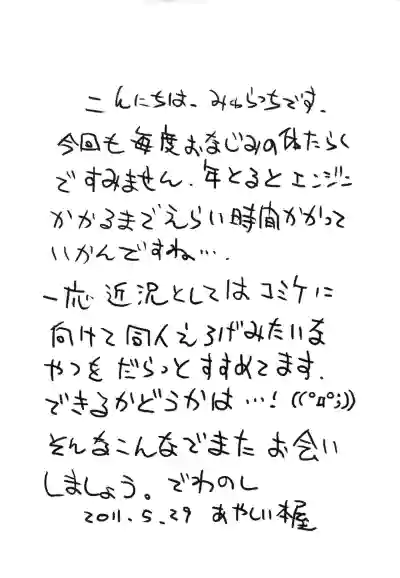 こんにちは、みゅらっちです.
今回も毎度おなじみの体たらく
ですみません.年とるとエンジン
かかるまでえらい時間かかって
いかんですね….
一応近況としてはコミケに
向けて同人えろげみたいな
やつをだらっとすすめてます.
できるかどうかは…!((°д°;))
そんなこんなでまたお会い
しましょう。でわのし
2011.5.29 あやしい本屋